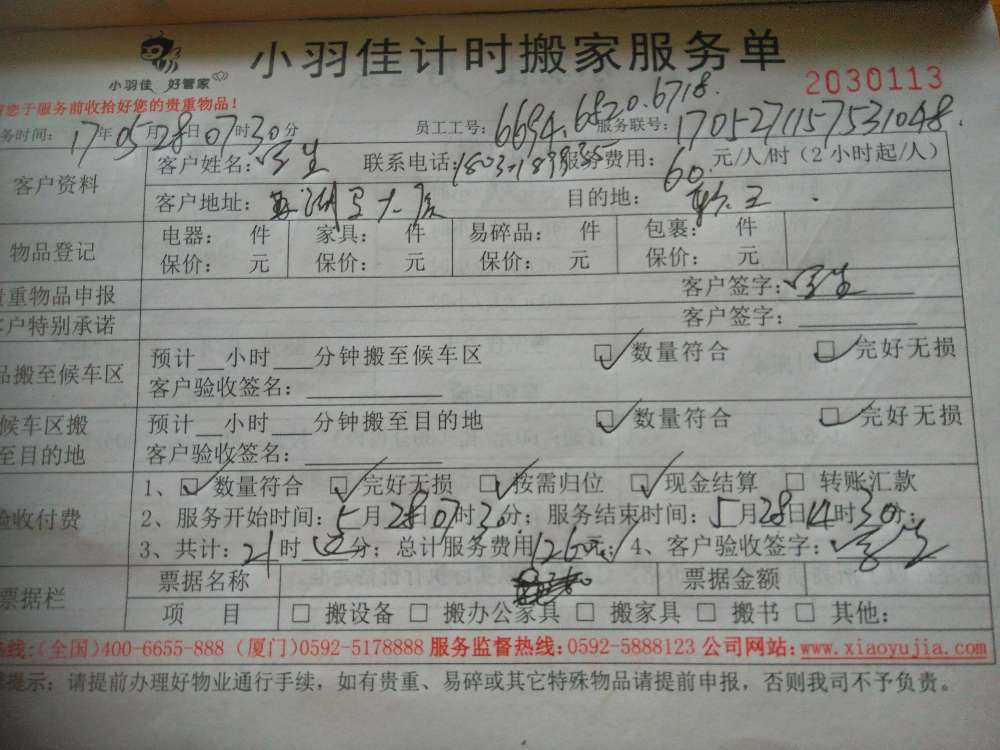 小羽佳 好管家
小羽佳计时搬家服务单
2030113
您于服务前收拾好您的贵重物品！
务时间：17年05月28日07时30分 员工工号：6694.6820.6718. 服务联号：1705271157531048.
客户资料
客户姓名： 联系电话： 服务费用：60元/人/时（2小时起/人）
客户地址： 目的地：
物品登记
电器： 件 家具： 件 易碎品： 件 包裹： 件
保价： 元 保价： 元 保价： 元 保价： 元
贵重物品申报 客户签字：
客户特别承诺 客户签字：
品搬至候车区
预计__小时___分钟搬至候车区 数量符合 完好无损
客户验收签名：
候车区搬至目的地
预计__小时___分钟搬至目的地 数量符合 完好无损
客户验收签名：
验收付费
1、数量符合 完好无损 按需归位 现金结算 转账汇款
2、服务开始时间：5月28日07时30分；服务结束时间：5月28日14时30分；
3、共计：21时 分；总计服务费用1260元；4、客户验收签字：
票据栏
票据名称 票据金额
项 目 搬设备 搬办公家具 搬家具 搬书 其他：
热线：(全国)400-6655-888 (厦门)0592-5178888 服务监督热线：0592-5888123 公司网站：www.xiaoyujia.com
提示：请提前办理好物业通行手续，如有贵重、易碎或其它特殊物品请提前申报，否则我司不予负责。